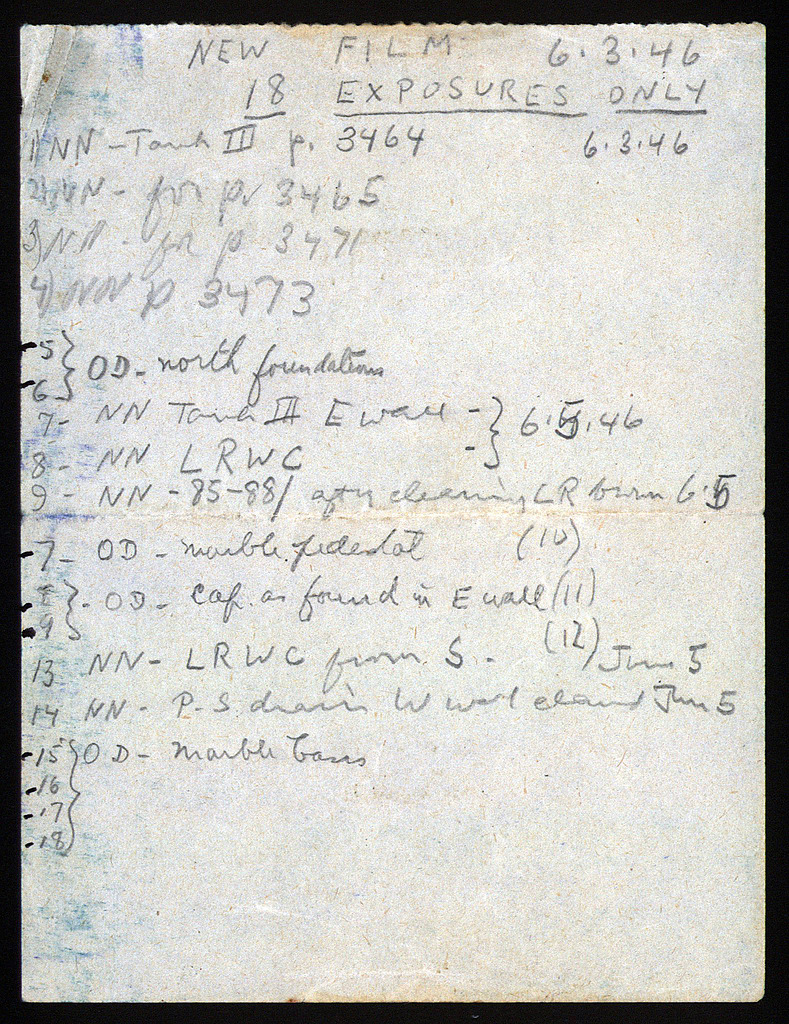 NEW FILM 6.3.46
18 EXPOSURES ONLY
1) NN - Tank III p. 3464 6.3.46
2) NN - for p. 3465
3) NN - for p 3471
4) NN p 3473
-5 } OD - north foundations
-6
7- NN Tank III E wall - } 6.5.46
8- NN LRWC -
9 - NN - 85-88/ after cleaning LR 6.5
-7- OD - marble pedestal (10)
-8 } - OD - cap. as found in E wall (11)
-9 (12)
13 NN - LRWC from S. - June 5
14 NN - P.S. drain W June 5
-15 } OD - marble basis
-16
-17
-18